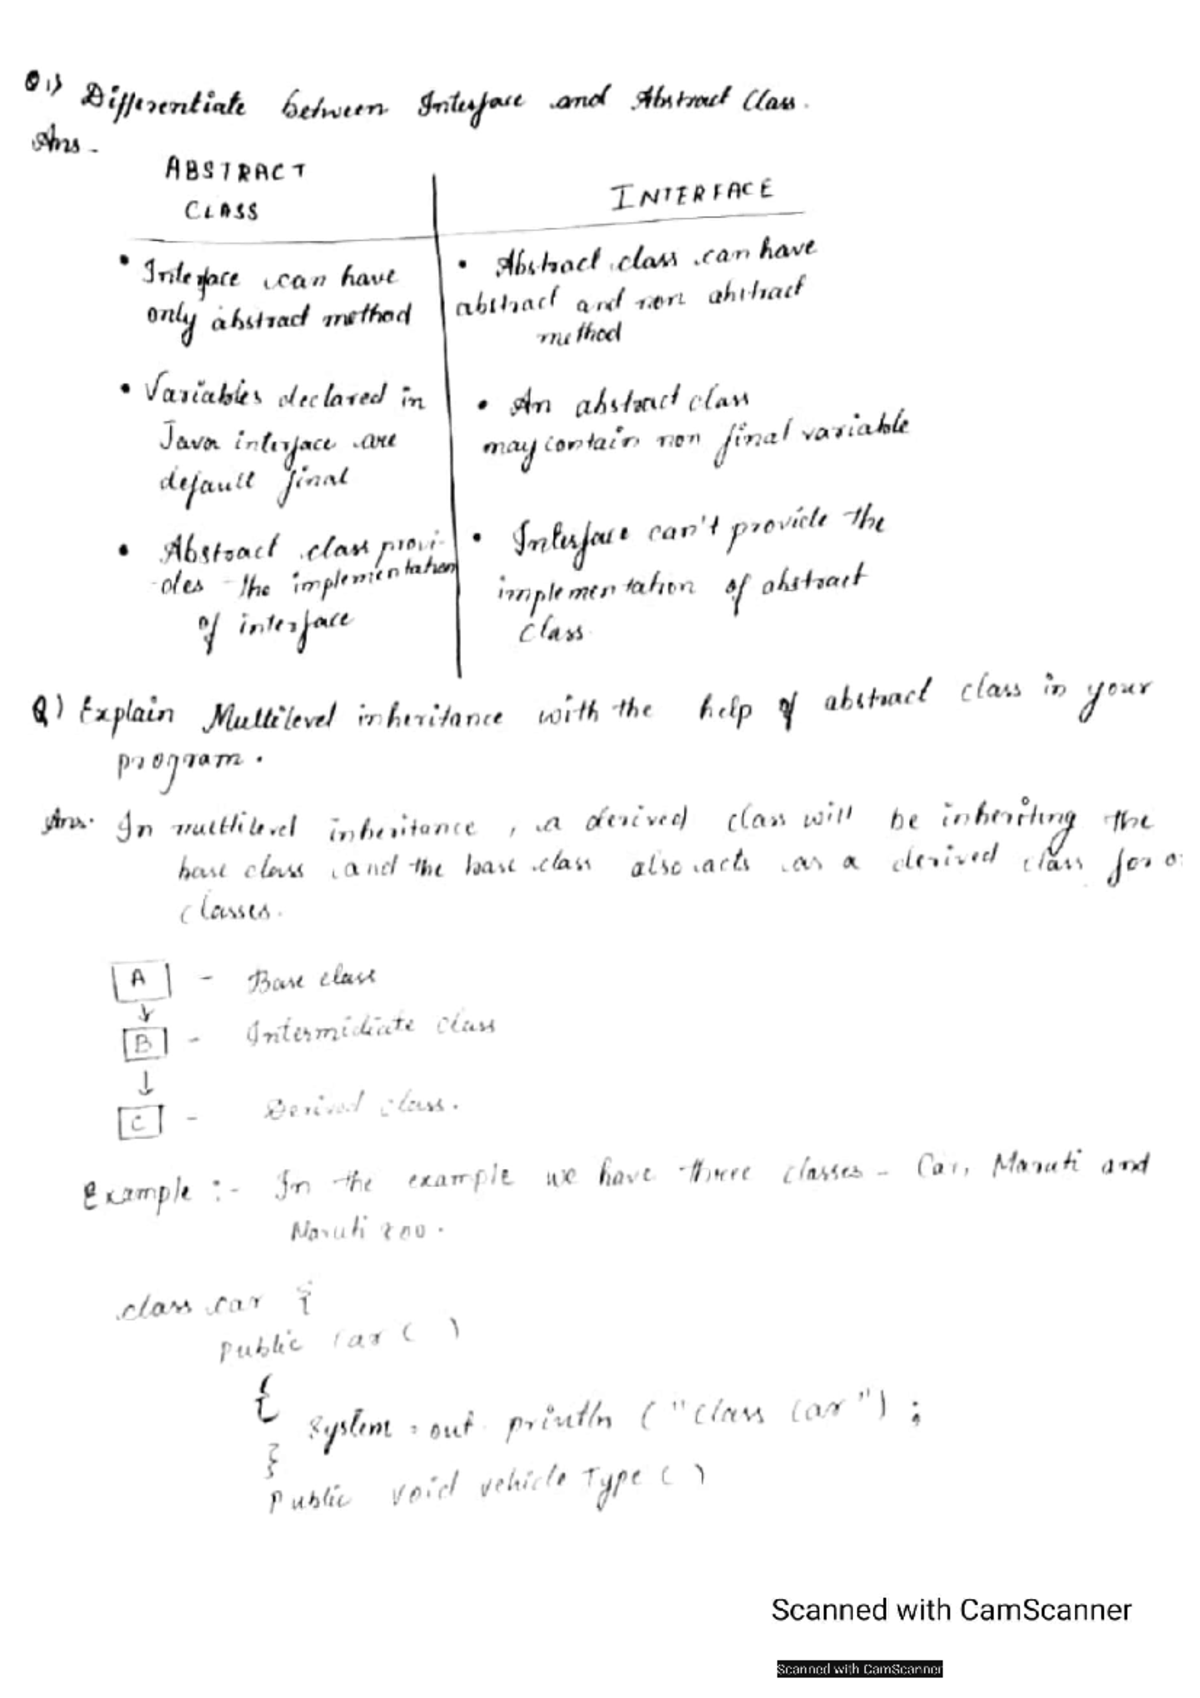 Q 1) Differentiate between Interface and Abstract Class.
Ans -
ABSTRACT
CLASS
INTERFACE
• Interface can have
only abstract method
• Abstract class can have
abstract and non abstract
method
• Variables declared in
Java interface are
default final
• An abstract class
may contain non final variable
• Abstract class provi-
-des the implementation
of interface
• Interface can't provide the
implementation of abstract
Class.
Q) Explain Multilevel inheritance with the help of abstract class in your
program.
Ans. In multilevel inheritance, a derived class will be inheriting the
base class and the base class also acts as a derived class for o
classes.
A - Base class
B - Intermidiate class
C - Derived class.
Example :- In the example we have three classes - Car, Maruti and
Maruti 800.
class car {
Public Car ( )
{
System . out . println ( "Class Car" ) ;
}
Public void vehicle Type ( )
Scanned with CamScanner
Scanned with CamScanner